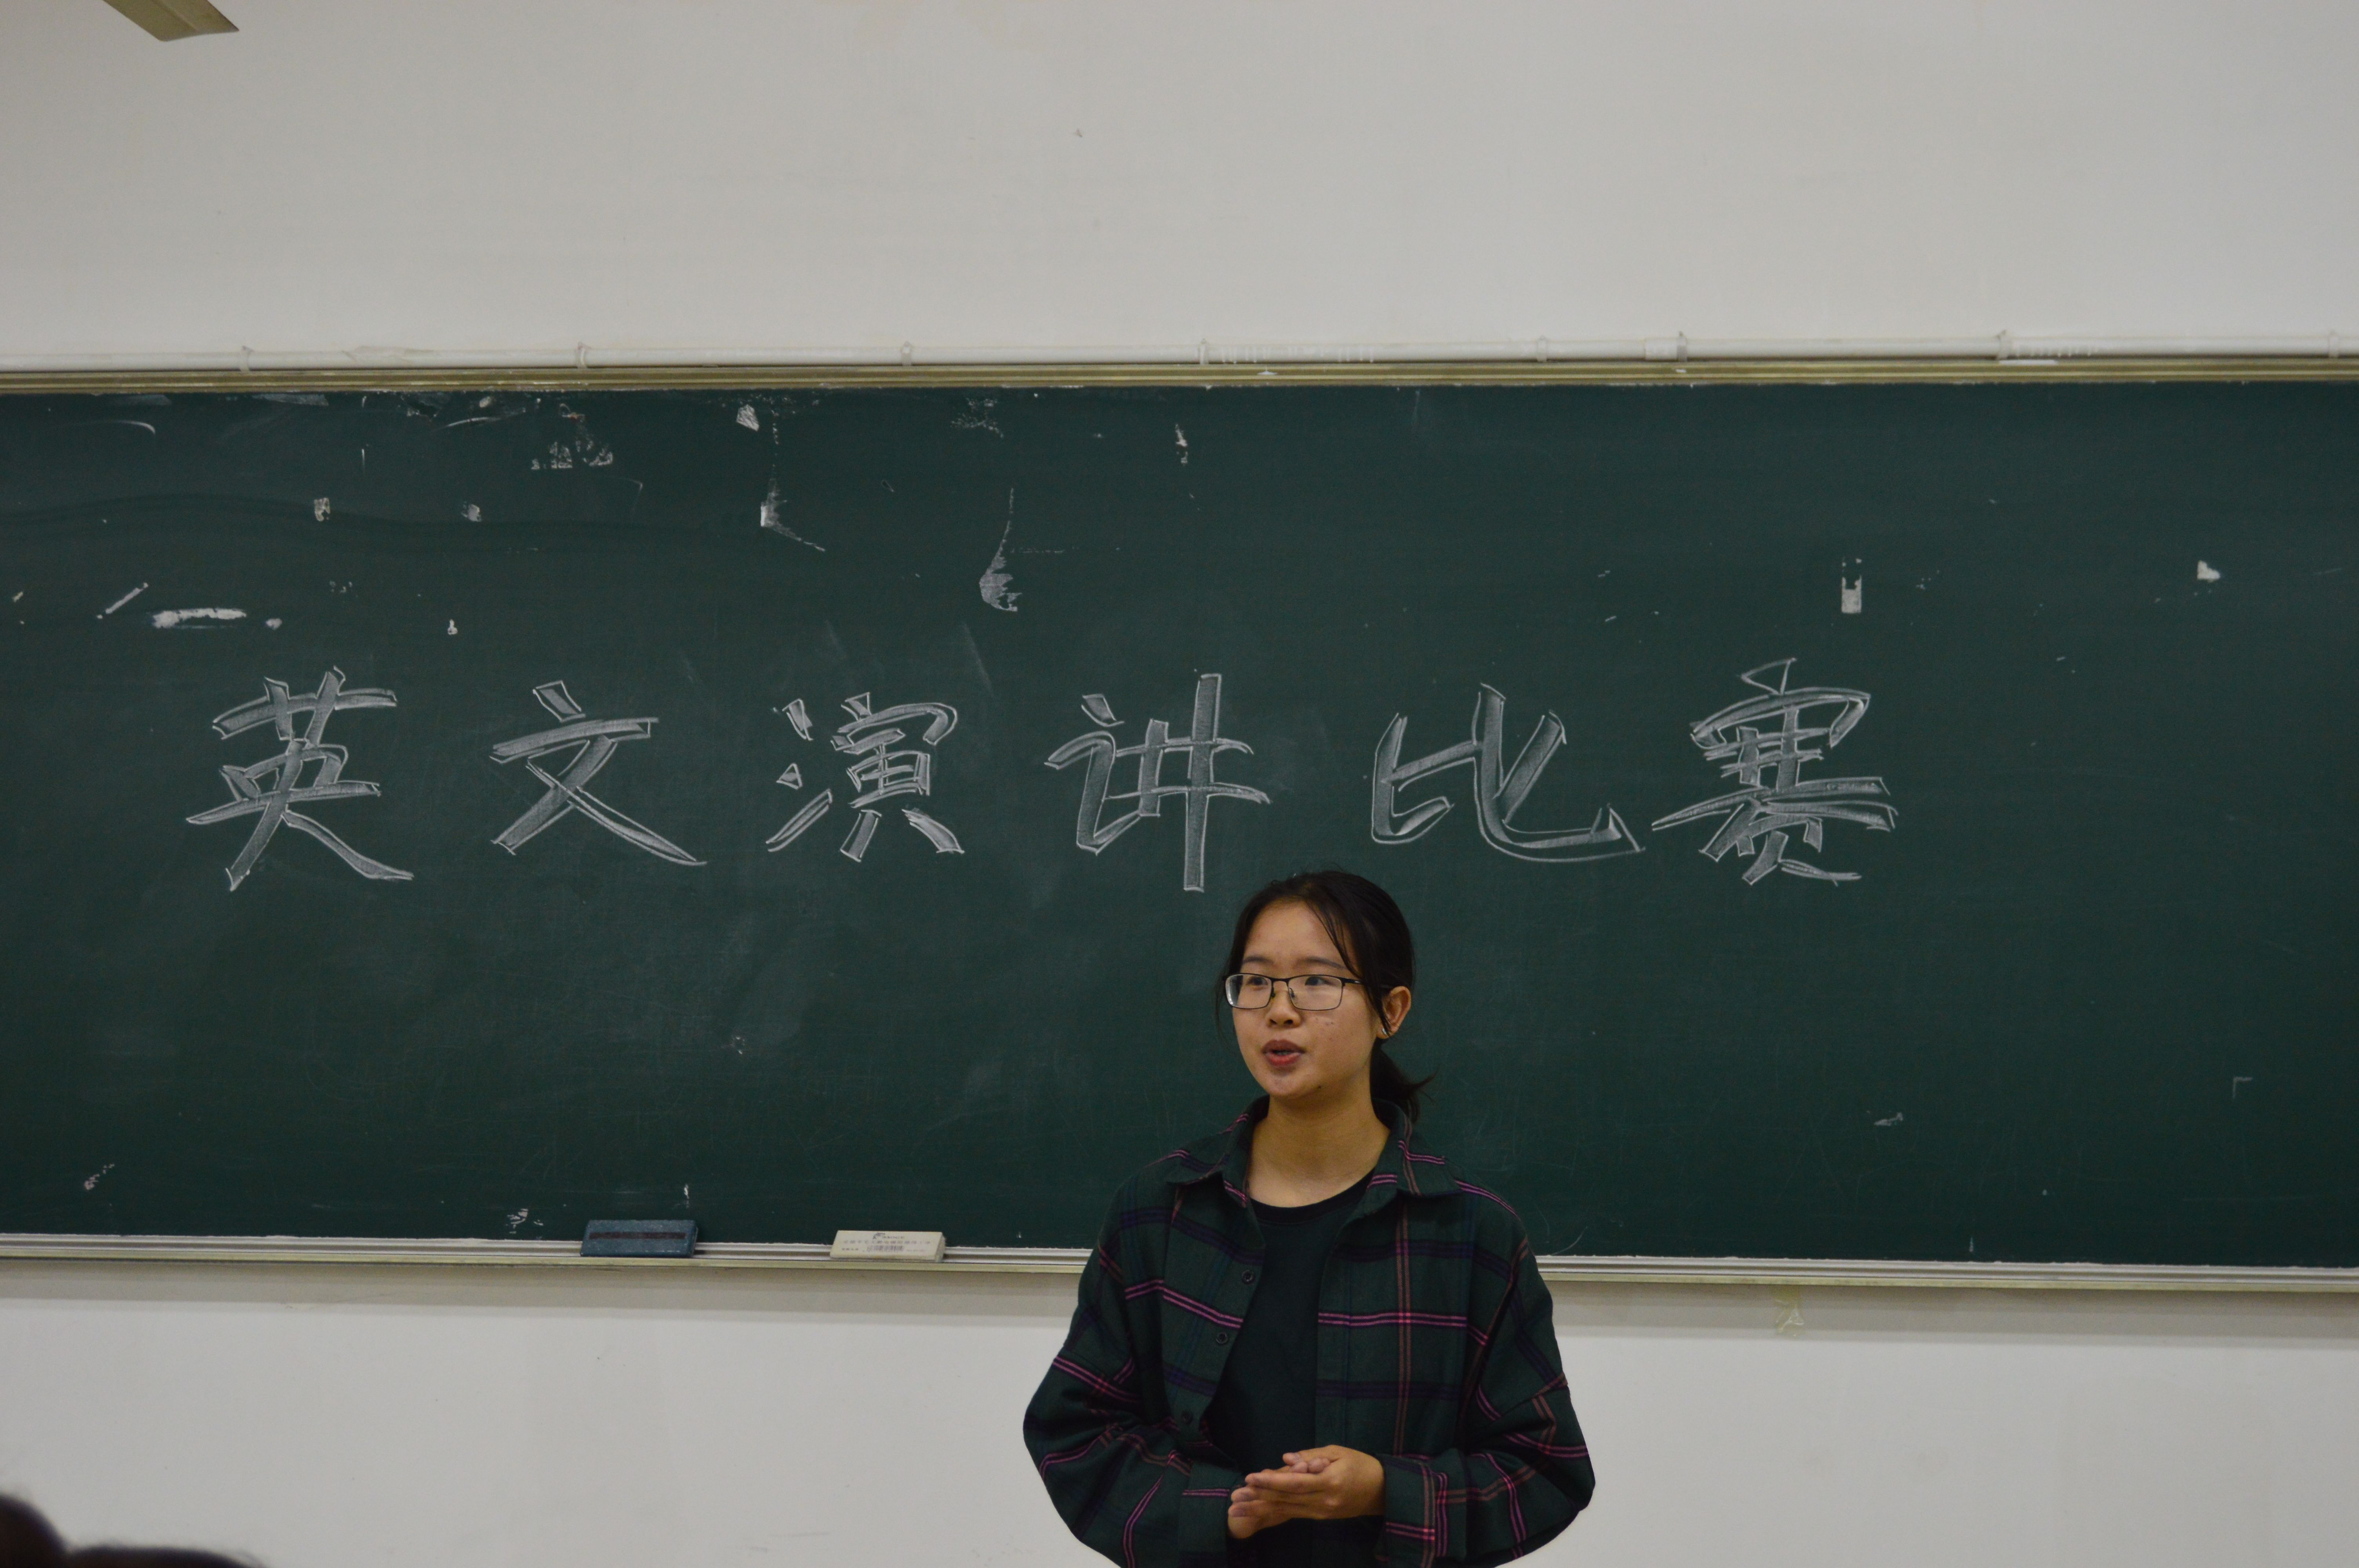 英文演讲比赛